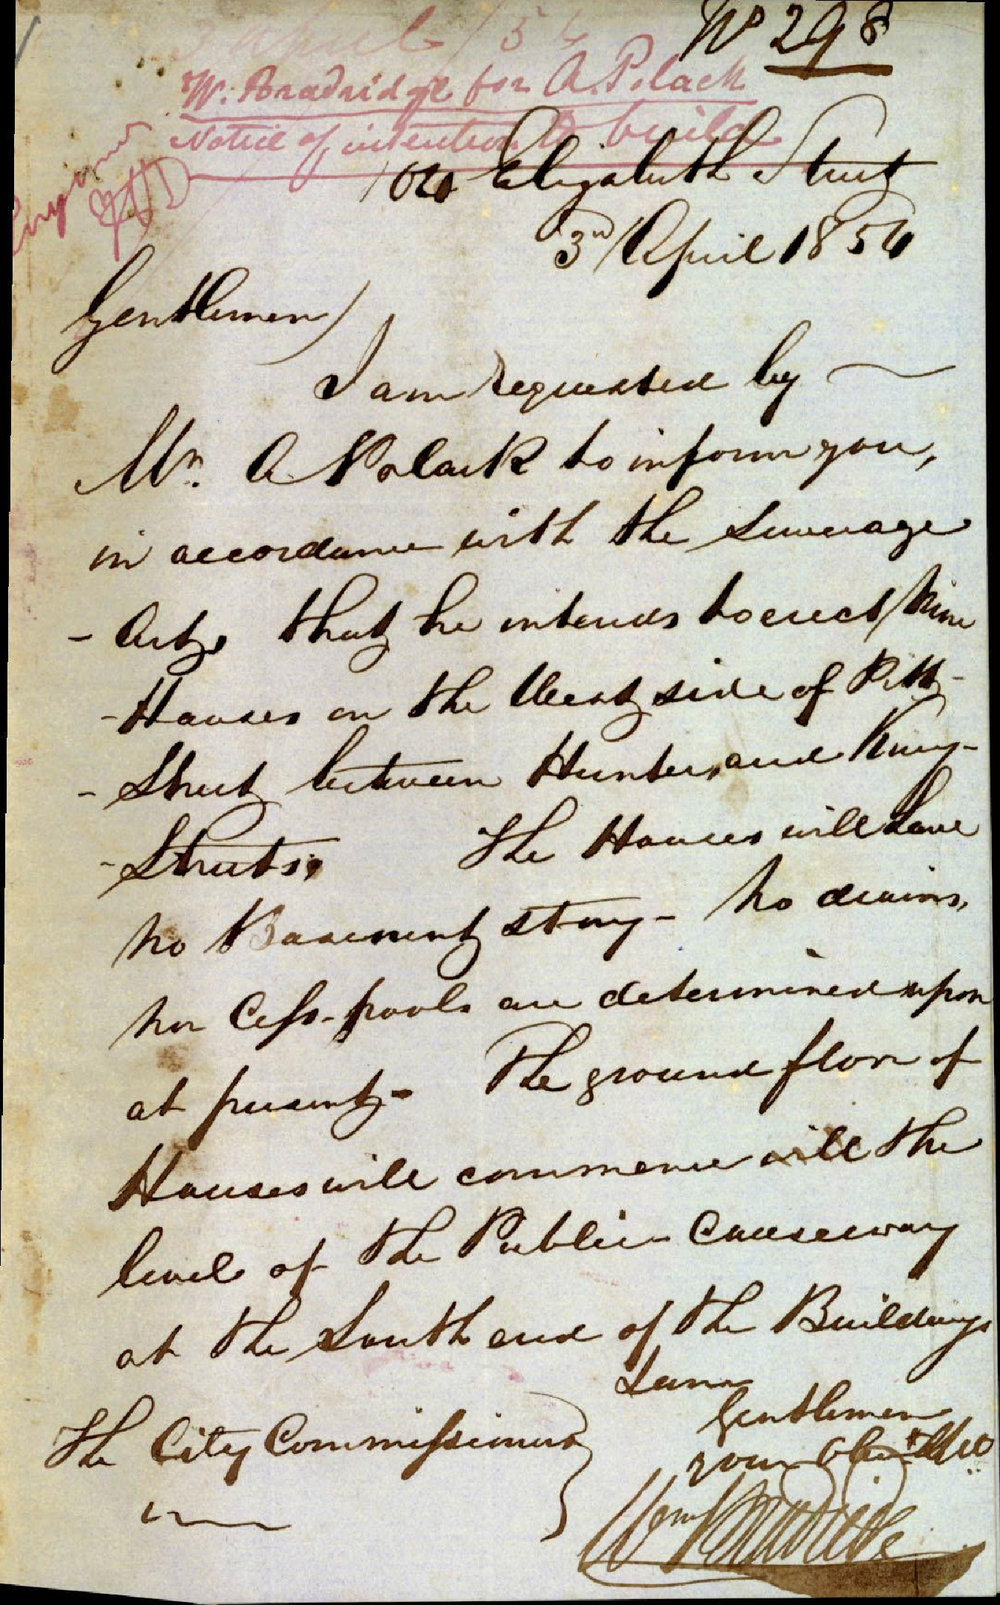 No 298
3 April /54
W. Bradridge for A. Polack
Notice of intention to build
Elizabeth Street
3rd April 1854
Gentlemen
I am requested by
Mr. A Polack to inform you,
in accordance with the Sewerage
- Act, that he intends to erect Nine
- Houses on the West side of Pitt -
- Street between Hunter, and King -
- Streets. The Houses will have
no Basement story - No drains,
nor Cess-pools are determined upon
at present - The ground floor of
Houses will commence will the
level of the Public Causeway
at the South end of the Buildings
I am
Gentlemen
your Obt
The City Commissioners
Wm Bradridge